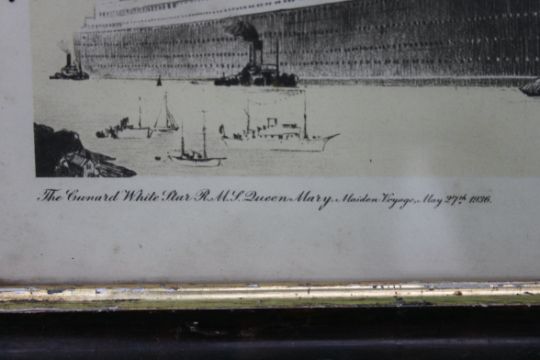 The Cunard White Star R.M.S. Queen Mary. Maiden Voyage, May 27th 1936.